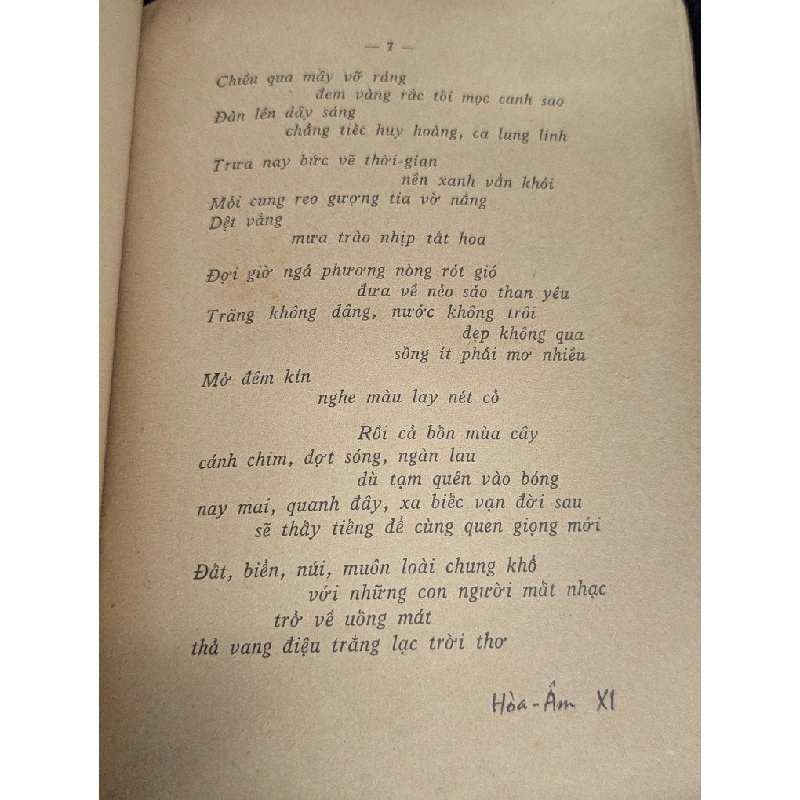 — 7 —
Chiều qua mây vỡ ráng
đem vàng rắc tôi mọc canh sao
Đàn lên dây sáng
chẳng tiếc huy hoàng, ca lung linh
Trưa nay bức vẽ thời-gian
nền xanh vẩn khói
Mỗi cung reo gượng tỉa vờ nắng
Dệt vắng
mưa trào nhịp tắt hoa
Đợi giờ ngả phương nòng rót gió
đưa về nẻo sáo than yêu
Trăng không dâng, nước không trôi
đẹp không qua
sống ít phải mơ nhiều
Mở đêm kín
nghe màu lay nét cỏ
Rồi cả bốn mùa cây
cánh chim, đợt sóng, ngàn lau
dù tạm quên vào bóng
nay mai, quanh đây, xa biếc vạn đời sau
sẽ thấy tiếng để cùng quen giọng mới
Đất, biển, núi, muôn loài chung khổ
với những con người mất nhạc
trở về uống mát
thả vang điệu trắng lạc trời thơ
Hòa-Âm XI